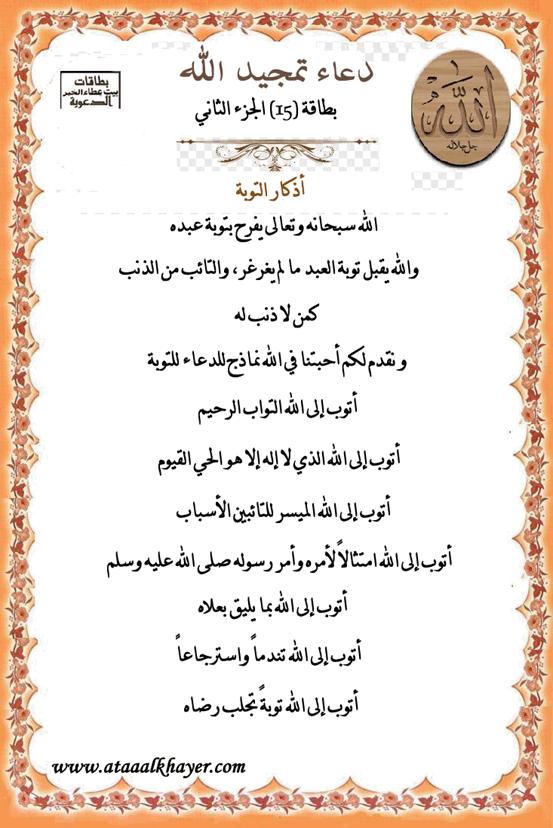 دعاء تمجيد الله
بطاقة (15) الجزء الثاني
بطاقات
بيت عطاء الخير
الدعوية
الله
جل جلاله
أذكار التوبة
الله سبحانه وتعالى يفرح بتوبة عبده
والله يقبل توبة العبد ما لم يغرغر، والتائب من الذنب
كمن لا ذنب له
ونقدم لكم أحبتنا في الله نماذج للدعاء للتوبة
أتوب إلى الله التواب الرحيم
أتوب إلى الله الذي لا إله إلا هو الحي القيوم
أتوب إلى الله الميسر للتائبين الأسباب
أتوب إلى الله امتثالاً لأمره وأمر رسوله صلى الله عليه وسلم
أتوب إلى الله بما يليق بعلاه
أتوب إلى الله تندماً واسترجاعاً
أتوب إلى الله توبةً تجلب رضاه
www.ataaalkhayer.com